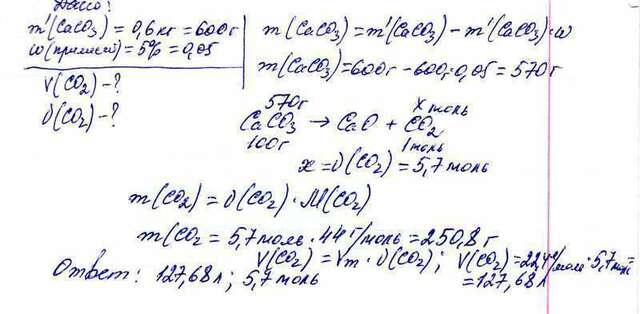 Дано:
m'(CaCO₃) = 0,6 кг = 600г
w(примесей) = 5% = 0,05
V(CO₂) - ?
υ(CO₂) - ?
m(CaCO₃) = m'(CaCO₃) - m'(CaCO₃)·w
m(CaCO₃) = 600г - 600г·0,05 = 570г
570г x моль
CaCO₃ → CaO + CO₂
100г 1моль
x = υ(CO₂) = 5,7 моль
m(CO₂) = υ(CO₂) · M(CO₂)
m(CO₂ = 5,7 моль · 44 г/моль = 250,8 г
V(CO₂) = Vm · υ(CO₂); V(CO₂) = 22,4 л/моль · 5,7 моль =
= 127,68 л
Ответ: 127,68 л; 5,7 моль